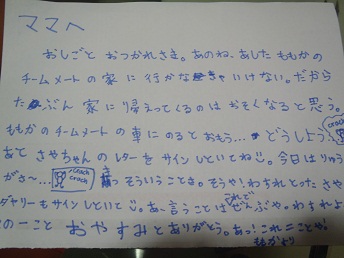 ママへ
おしごと おつかれさま。あのね、あした ももかの
チームメートの家に行かなきゃいけない。だから
たぶん 家に帰えってくるのは おそくなると思う。
ももかのチームメートの車にのるとおもう... どうしよう...
あと さやちゃんの レターをサインしといてね。今日は りゅう
がさ〜... そういうことさ。そうや!わすれとった さや
ダヤリーもサインしといて。あ、言うことは これで ぜんぶや。わすれよ
の一こと おやすみとありがとう。あっ!これ=ことや!
ももかより